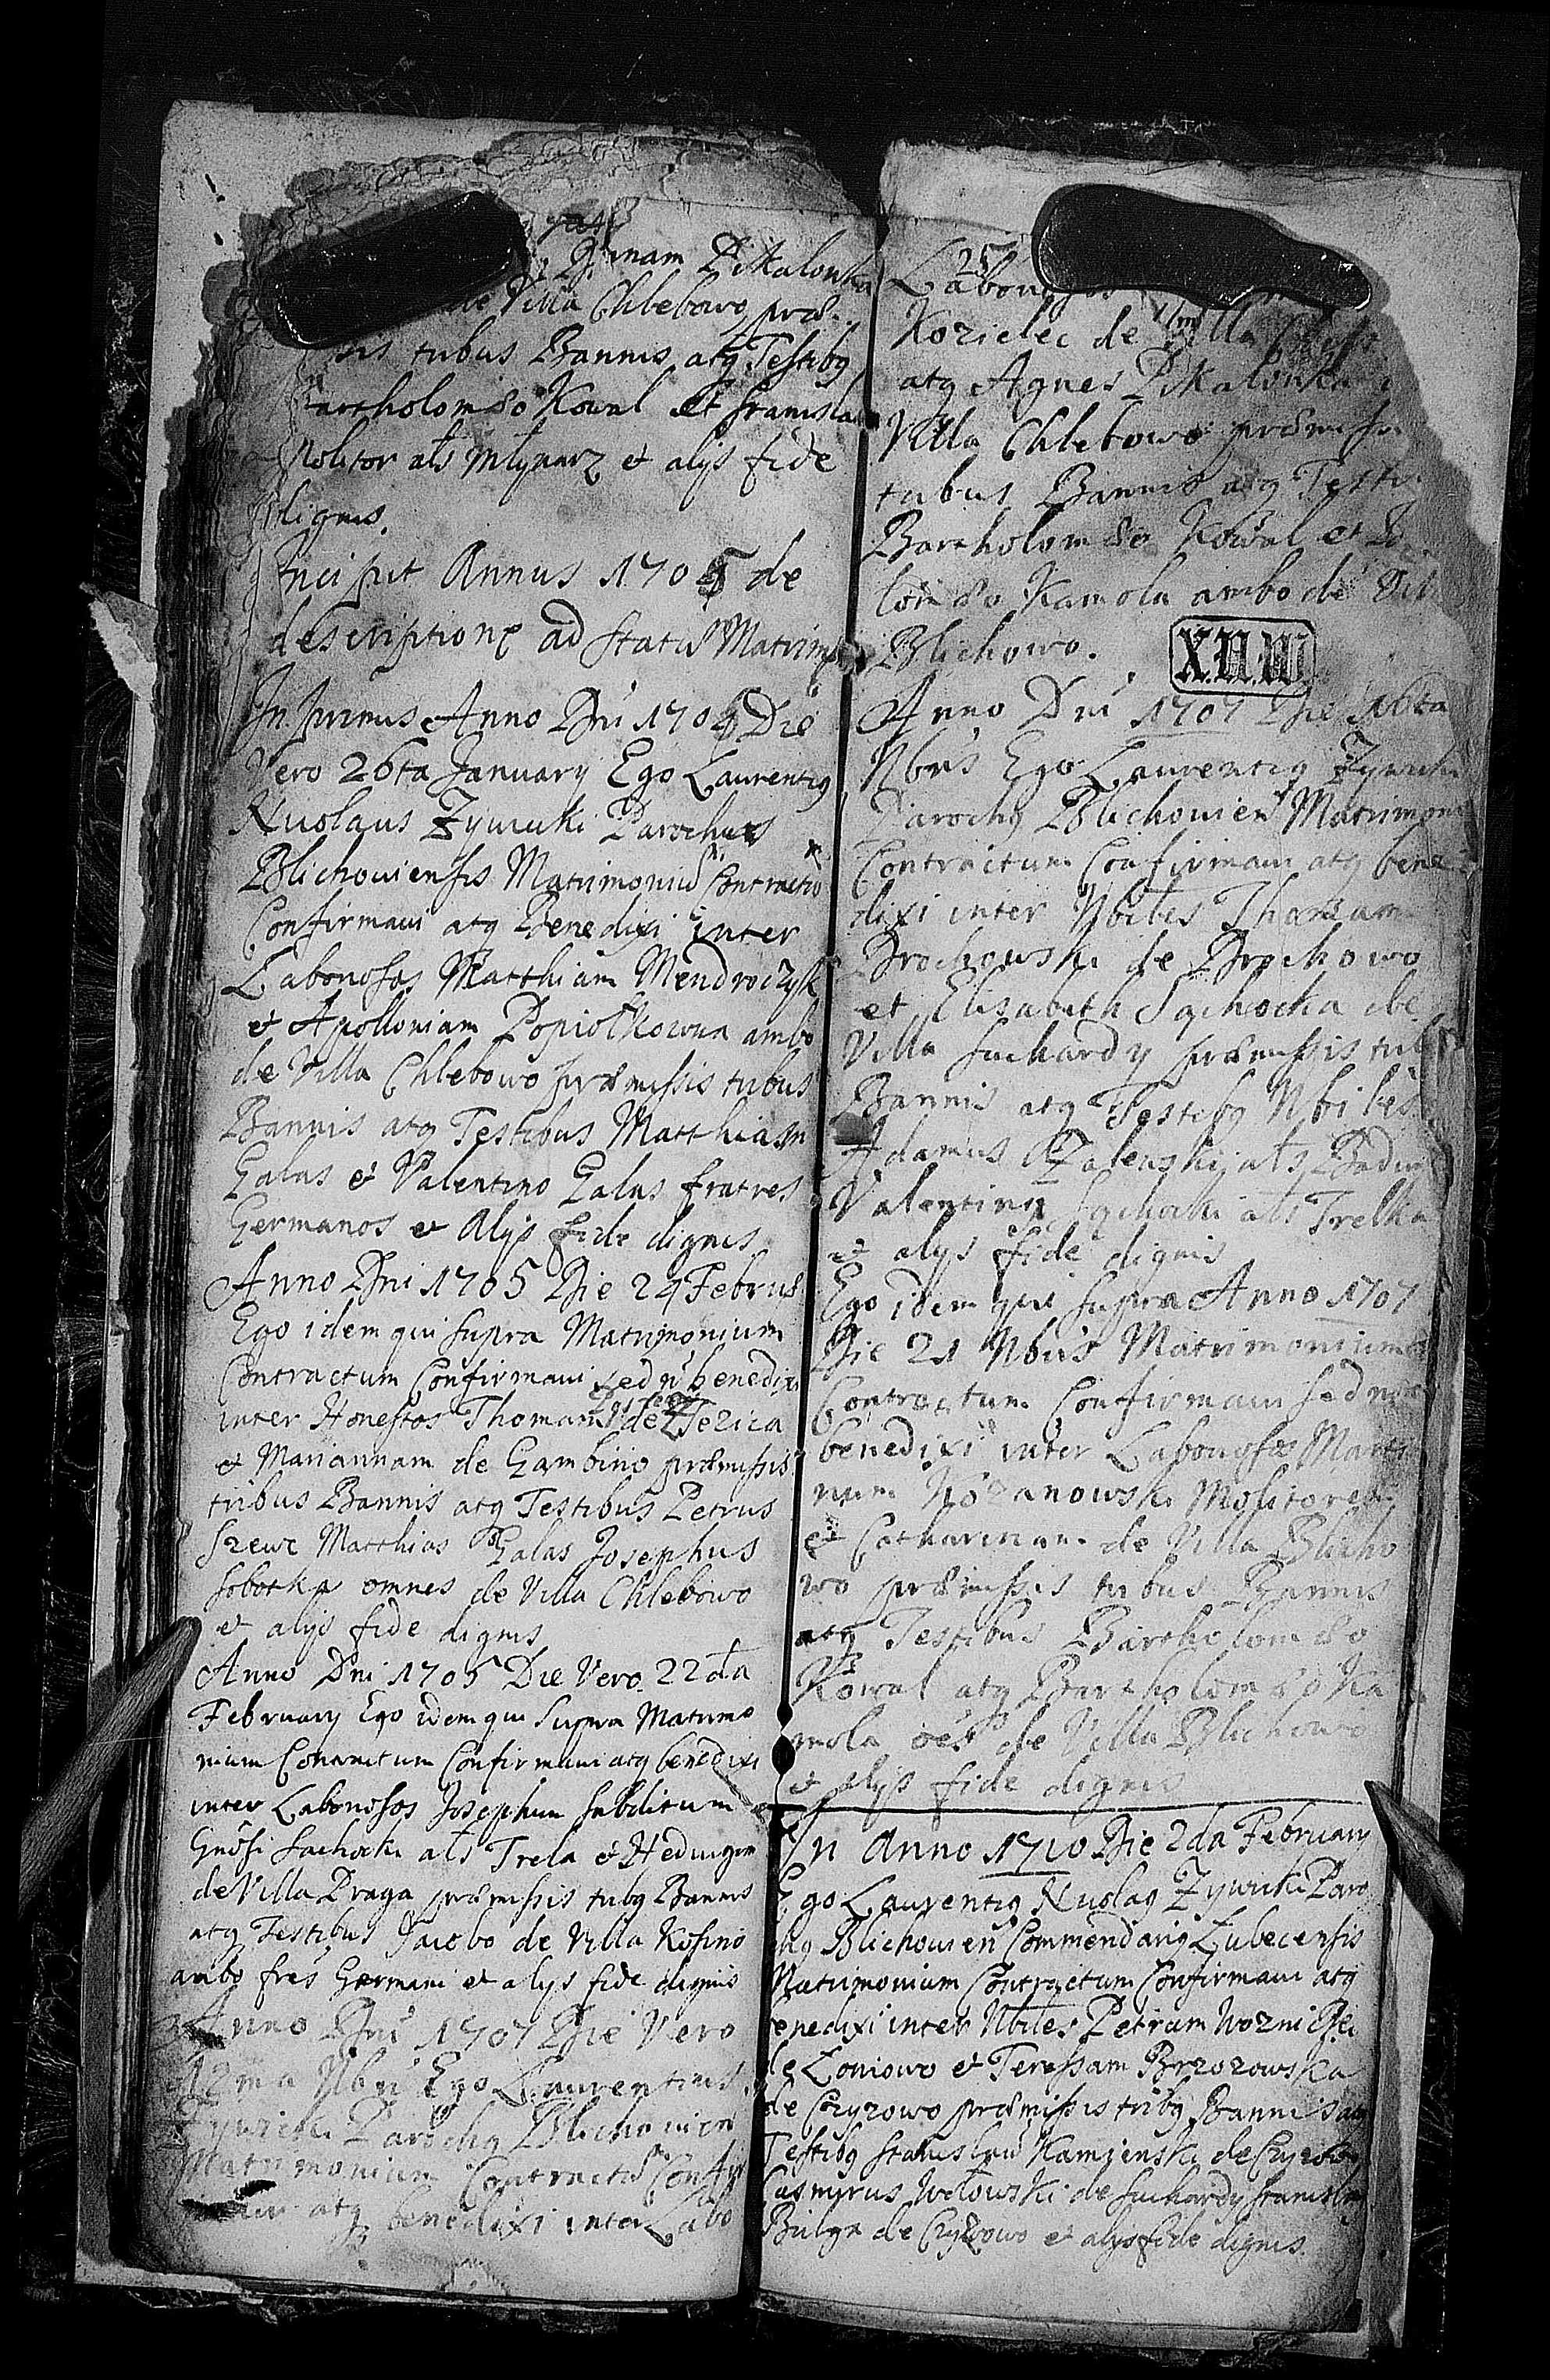 nam Pikalonka
de Villa Chlebowo prae
sis tribus Bannis atq Testibq
Bartholomæo Kowal et Stanisla
Molitor als Młynarz et alijs fide
dignis.
Incipit Annus 1705 de
descriptione ad statū Matrimo
In primus Anno Dni 1705 Die
Vero 26ta January Ego Laurentiq
Nicolaus Zywicki Parochus
Blichouiensis Matrimoniū Contractū
Confirmaui atq Benedixi inter
Laboriosos Matthiam Mendroczyk
et Apolloniam Popiołkowna ambo
de Villa Chlebowo præmissis tribus
Bannis atq Testibus Matthiam
Galas et Valentino Galas fratres
Germanos et Alijs fide dignis
Anno Dni 1705 Die 24 Februs
Ego idem qui supra Matrimonium
Contractum Confirmaui sed n benedixi
inter Honestos Thomam de
et Mariannam de Gambino præmissis
tribus Bannis atq Testibus Petrus
Szewc Matthias Galas Josephus
Sobotka omnes de Villa Chlebowo
et alijs fide dignis
Anno Dni 1705 Die Vero 22da
February Ego idem qui Supra Matrimo
nium Contractum Confirmaui atq benedixi
inter Laboriosos Josephum subditum
Gnosi Sachocki als Trela et Heduigem
de Villa Draga præmissis tribq Bannis
atq Testibus Jacobo de Villa Kosino
ambo fres Germani et alijs fide dignis
Anno Dni 1707 Die Vero
12ma Nbri Ego Laurentius
Zywicki Parochq Blichouien
Matrimonium Contractū Confir
maui atq benedixi inter Labo
25
Laboriosos
Kozielec de Villa
atq Agnes Pikalonka
Villa Chlebowo præmissi
tribus Bannis atq Testi
Bartholomæo Kowal et
lomæo Kamola ambo de Vil
Blichowo.
X.II.III
Anno Dni 1707 Die 16ta
Nbris Ego Laurentiq Zywicki
Parochq Blichouien Matrimoni
Contractum Confirmaui atq bene
dixi inter Nbiles Thomam
Brochowski de Brochowo
et Elisabeth Sachocka de
Villa Suchardy præmissis trib
Bannis atq Testibq Nbiles
Adamus Zalenski als
Valentinq Sachocki als Trelka
et alijs fide dignis
Ego idem qui supra Anno 1707
Die 21 Nbris Matrimonium
Contractum Confirmaui sed non
benedixi inter Laboriosos Marti
num Kozanowski Molitorem
et Catharinam de Villa Blicho
wo præmissis tribus Bannis
atq Testibus Bartholomæo
Kowal atq Bartholomæo Ka
mola oes de Villa Blichowo
et alijs fide dignis
In Anno 1710 Die 2da February
Ego Laurentiq Nicolaq Zywicki Paro
chq Blichouien Commendariq Lubecensis
Matrimonium Contractum Confirmaui atq
benedixi inter Nbiles Petrum
de Loniowo et Teressam Brzozowska
de Czyzowo præmissis tribq Bannis atq
Testibq Stanislaus Kamienski de Czyzowo
Casmirus Wołowski de Suchardy Stanislaq
Bulga de Czyzowo et alijs fide dignis